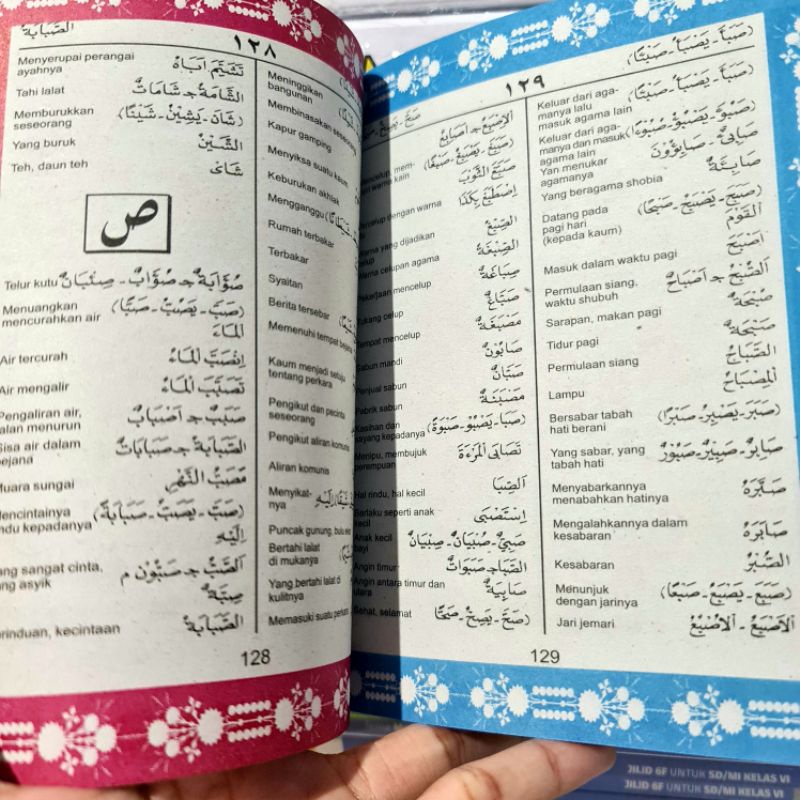 الصَّبَابَةُ
١٢٨
Menyerupai perangai
ayahnya تَشَيَّمَ اَبَاهُ
Tahi lalat الشَّامَةُ جـ شَامَاتٌ
Memburukkan
seseorang (شَانَ - يَشِيْنُ - شَيْنًا)
Yang buruk الشَّيْنُ
Teh, daun teh شَاىٌ
ص
Telur kutu صُؤَابَةٌ جـ صُؤَابٌ - صِئْبَانٌ
Menuangkan
mencurahkan air (صَبَّ - يَصُبُّ - صَبًّا)
المَاءَ
Air tercurah اِنْصَبَّ المَاءُ
Air mengalir تَصَبَّبَ المَاءُ
Pengaliran air,
jalan menurun صَبَبٌ جـ اَصْبَابٌ
Sisa air dalam
bejana الصُّبَابَةُ جـ صُبَابَاتٌ
Muara sungai مَصَبُّ النَّهْرِ
Mencintainya
rindu kepadanya (صَبَّ - يَصَبُّ - صَبَابَةً)
اِلَيْهِ
yang sangat cinta,
yang asyik الصَّبُّ جـ صَبُّوْنَ م
صَبَّةٌ
kerinduan, kecintaan الصَّبَابَةُ
Meninggikan
bangunan
Membinasakan seseorang
Kapur gamping
Menyiksa suatu kaum
Keburukan akhlak
Mengganggu
Rumah terbakar
Terbakar
Syaitan
Berita tersebar
Memenuhi tempat bejana
Kaum menjadi setuju
tentang perkara
Pengikut dan pecinta
seseorang
Pengikut aliran komunis
Aliran komunis
Menyikat-
nya
Puncak gunung, bulu
Bertahi lalat
di mukanya
Yang bertahi lalat di
kulitnya
Memasuki suatu
128
(صَبَأَ - يَصْبَأُ - صَبْئًا)
١٢٩
صَحَّ - يَصِحُّ
الاُصْبُعُ جـ اَصَابِعُ
mencelup, mem-
beri warna kain (صَبَغَ - يَصْبَغُ - صَبْغًا)
صَبَغَ الثَّوْبَ
dengan warna اِصْطَبَغَ بِكَذَا
yang dijadikan
celup الصِّبْغُ
celupan agama الصِّبْغَةُ
Pekerjaan mencelup صِبَاغَةٌ
Tukang celup صَبَّاغٌ
Tempat mencelup مَصْبَغَةٌ
Sabun mandi صَابُوْنٌ
Penjual sabun صَبَّانٌ
Pabrik sabun مَصْبَنَةٌ
Kasihan dan
sayang kepadanya (صَبَا - يَصْبُوْ - صَبْوَةً)
Menipu, membujuk
perempuan تَصَابَى الْمَرْءَةَ
Hal rindu, hal kecil الصِّبَا
Berlaku seperti anak
kecil اِسْتَصْبَى
Anak kecil
bayi صَبِيٌّ - صُبْيَانٌ - صِبْيَانٌ
Angin timur الصَّبَا جـ صَبَوَاتٌ
Angin antara timur dan
utara صَابِيَةٌ
Sehat, selamat (صَحَّ - يَصِحُّ - صَحًّا)
Keluar dari aga-
manya lalu
masuk agama lain (صَبَأَ - يَصْبَأُ - صَبْئًا)
Keluar dari aga-
manya dan masuk
agama lain (صَبُؤَ - يَصْبُؤُ - صُبُوْءً)
Yan menukar
agamanya صَابِئٌ - صَابِؤُوْنَ
Yang beragama shobia صَابِئَةٌ
Datang pada
pagi hari
(kepada kaum) (صَبَحَ - يَصْبَحُ - صَبْحًا)
القَوْمَ
Masuk dalam waktu pagi اَصْبَحَ
Permulaan siang.
waktu shubuh الصُّبْحُ جـ اَصْبَاحٌ
Sarapan, makan pagi صُبْحَةٌ
Tidur pagi صُبْحَةٌ
Permulaan siang الصَّبَاحُ
Lampu المِصْبَاحُ
Bersabar tabah
hati berani (صَبَرَ - يَصْبِرُ - صَبْرًا)
Yang sabar, yang
tabah hati صَابِرٌ - صَبِيْرٌ - صَبُوْرٌ
Menyabarkannya
menabahkan hatinya صَبَّرَهُ
Mengalahkannya dalam
kesabaran صَابَرَهُ
Kesabaran الصَّبْرُ
Menunjuk
dengan jarinya (صَبَعَ - يَصْبَعُ - صَبْعًا)
Jari jemari الاَصْبَعُ - الاُصْبُعُ
129
JILID 6F UNTUK SD/MI KELAS VI
JILID 6F UNTUK SD/MI KELAS VI